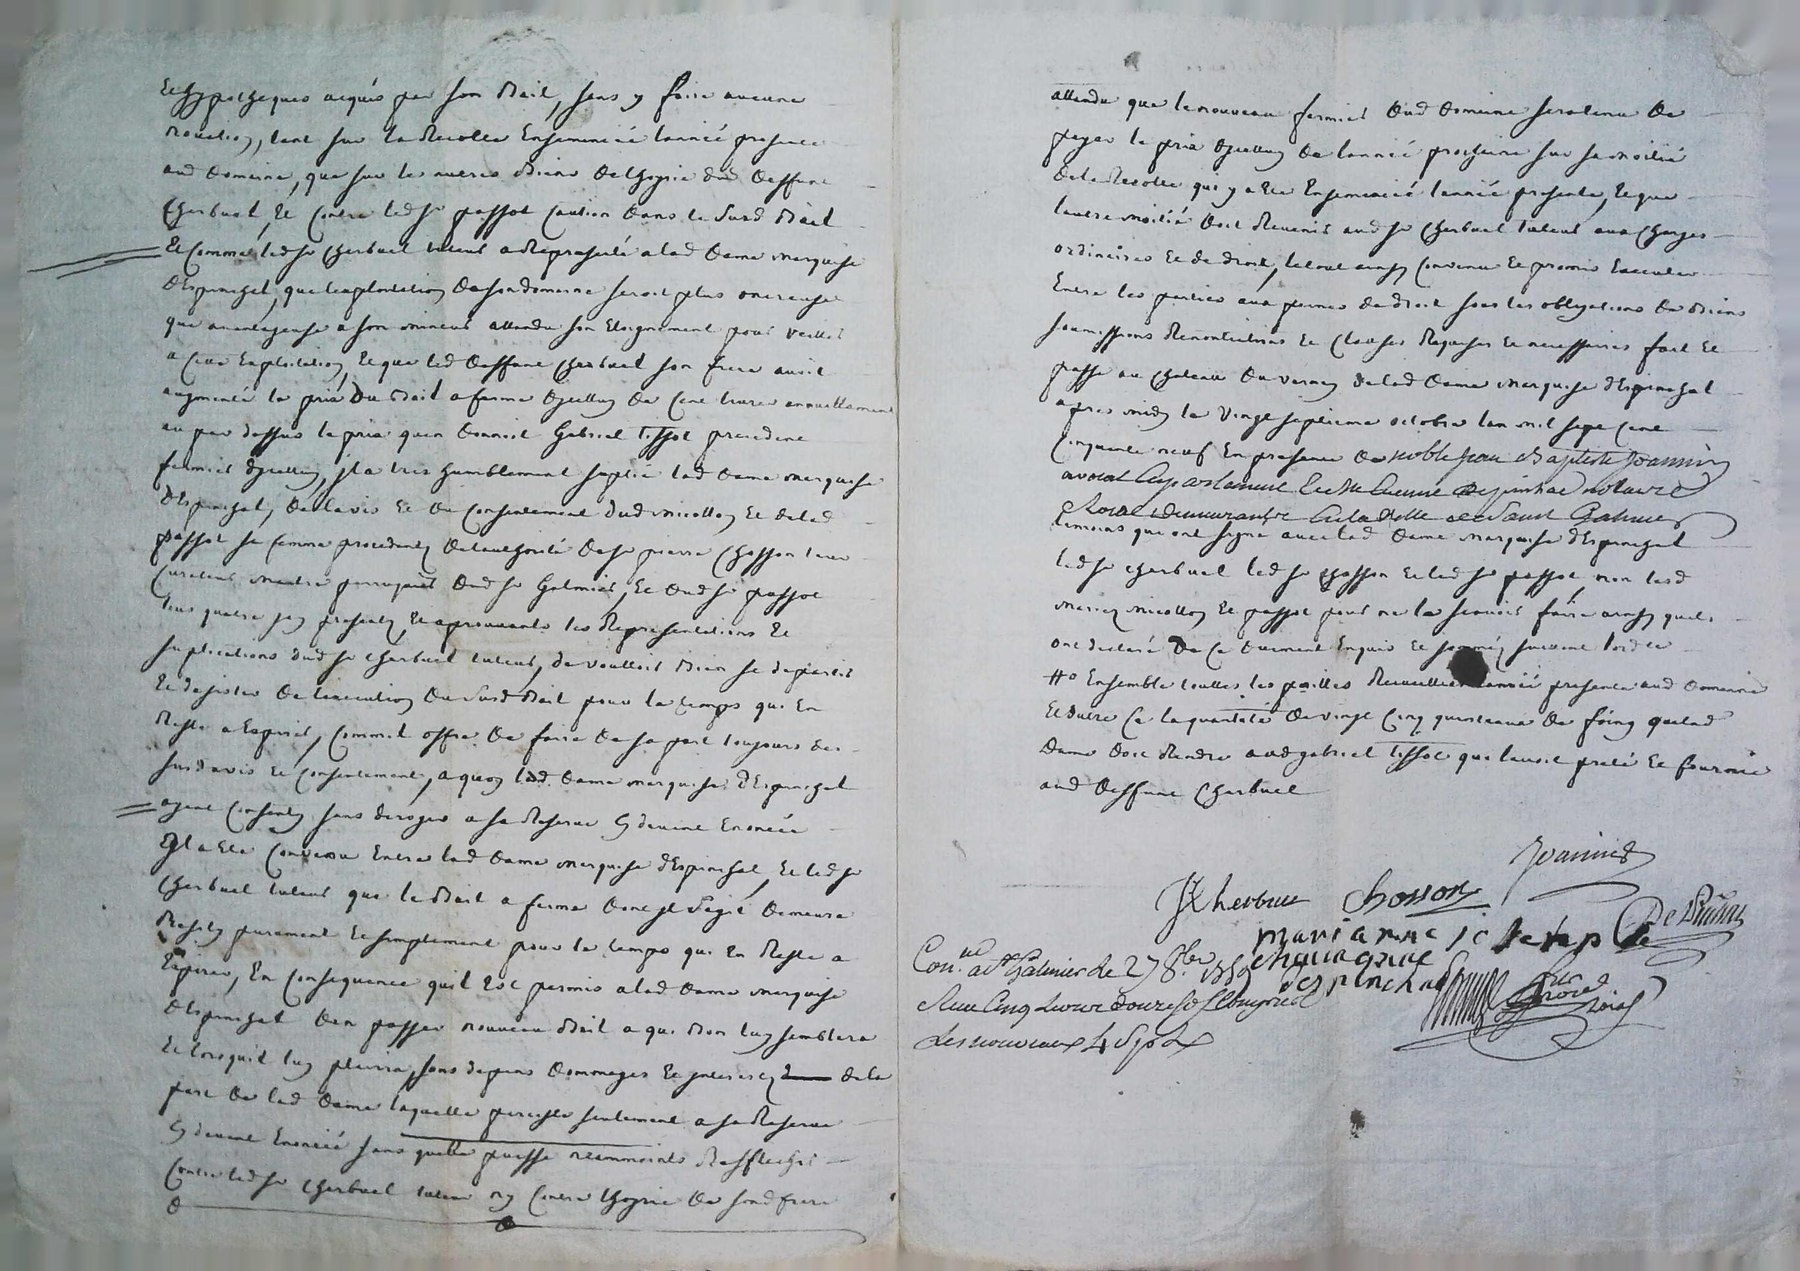 et hypotheques acquis par son Bail, sans y faire aucune
novation, tant sur la Recolte Ensemencée lannée presente
aud Domaine, que sur les autres Biens de lhoyrie dud deffunt
Cherbuel, et Contre led sr passot Caution dans le susd Bail
Et Comme led sr Cherbuel tuteur a Representé a lad dame marquise
dEspinchal, que lexploitation de son domaine seroit plus onereuse
que avantageuse a son mineur attendu son Eloignement pour veiller
a cette Exploitation, Et que led deffunt Cherbuel son frere avoit
augmenté le prix du Bail a ferme de Cent livres annuellement
au par dessus le prix quen donnoit Gabriel Tissot precedent
fermier, Il a tres humblement suplié lad dame marquise
dEspinchal, de lavis et du Consentement dud Nicollon et de lad
passot sa femme procedants de lauthorité de sr pierre Chosson leur
Curateur maitre perruquier dud St Galmier, Et dud sr passot
tous quatre icy presents, Et aprouvants les Representations Et
suplications dud sr Cherbuel tuteur, de voulloir Bien se departir
Et desister de lexecution du susd Bail pour le temps qui En
Reste a Expirer, Comme il offre de faire de sa part toujours des
susd avis et Consentement, a quoy lad dame marquise dEspinchal
ayant Consenty sans deroger a sa Reserve Cy devant Enoncée
Il a Eté Convenu Entre lad dame marquise dEspinchal, Et led sr
Cherbuel tuteur que le Bail a ferme dont sagit, demeure
Resily purement et simplement pour le temps qui En Reste a
Expirer, En Consequence quil Est permis a lad dame marquise
dEspinchal den passer nouveau Bail a qui Bon luy semblera
Et lorsquil luy plaira, sans depens dommages et interests de la
part de lad dame laquelle persiste seulement a sa Reserve
Cy devant Enoncée sans quelle puisse neanmoints Reflechir
Contre led sr Cherbuel tuteur ny Contre lhoyrie de sond frere
attendu que le nouveau fermier dud domaine sera tenu de
payer le prix de lannée prochaine sur sa moitié
de la Recolte qui y a Eté Ensemencée lannée presente, Et que
lautre moitié doit Revenir aud sr Cherbuel tuteur aux Charges
ordinaires Et de droit, le tout ainsy Convenu Et promis Executer
Entre les parties aux peines de droit sous les obligations de Biens
soumissions Renontiations et Clauses Requises et necessaires fait Et
passé au Chateau du verney de lad dame marquise dEspinchal
apres midy le Vingt septieme octobre lan mil sept Cent
Cinquante neuf En presence de noble Jean Baptiste Joannin
avocat En parlement Et de notaire
Royal demeurants En la Ville de Saint Galmier
temoins qui ont signé avec lad dame marquise dEspinchal
led sr Cherbuel led sr Chosson et led sr passot, non lesd
mariez Nicollon Et passot pour ne le scavoir faire ainsy quils
ont declaré de Ce duement Enquis Et sommés suivant lordce
Ensemble touttes les pailles Recueillies lannée presente aud domaine
Et outre Ce la quantité de vingt Cinq quintaux de foing que lad
dame doit Rendre aud gabriel Tissot qui lavoit preté Et fournie
aud deffunt Cherbuel
Joannin
Cherbuel Chosson
marianne
chavagnac
despinchal
Con.lé a St Galmier le 27 8.bre 1759
Reçu Cinq livres douze s
Les nouveaux 4 s p l